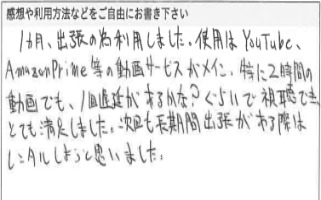 感想や利用方法などをご自由にお書き下さい
1カ月、出張の為利用しました。使用はYouTube、
AmazonPrime等の動画サービスがメイン。特に2時間の
動画でも、1回遅延があるかな?ぐらいで視聴でき、
とても満足しました。次回も長期間出張がある際は
レンタルしようと思いました。